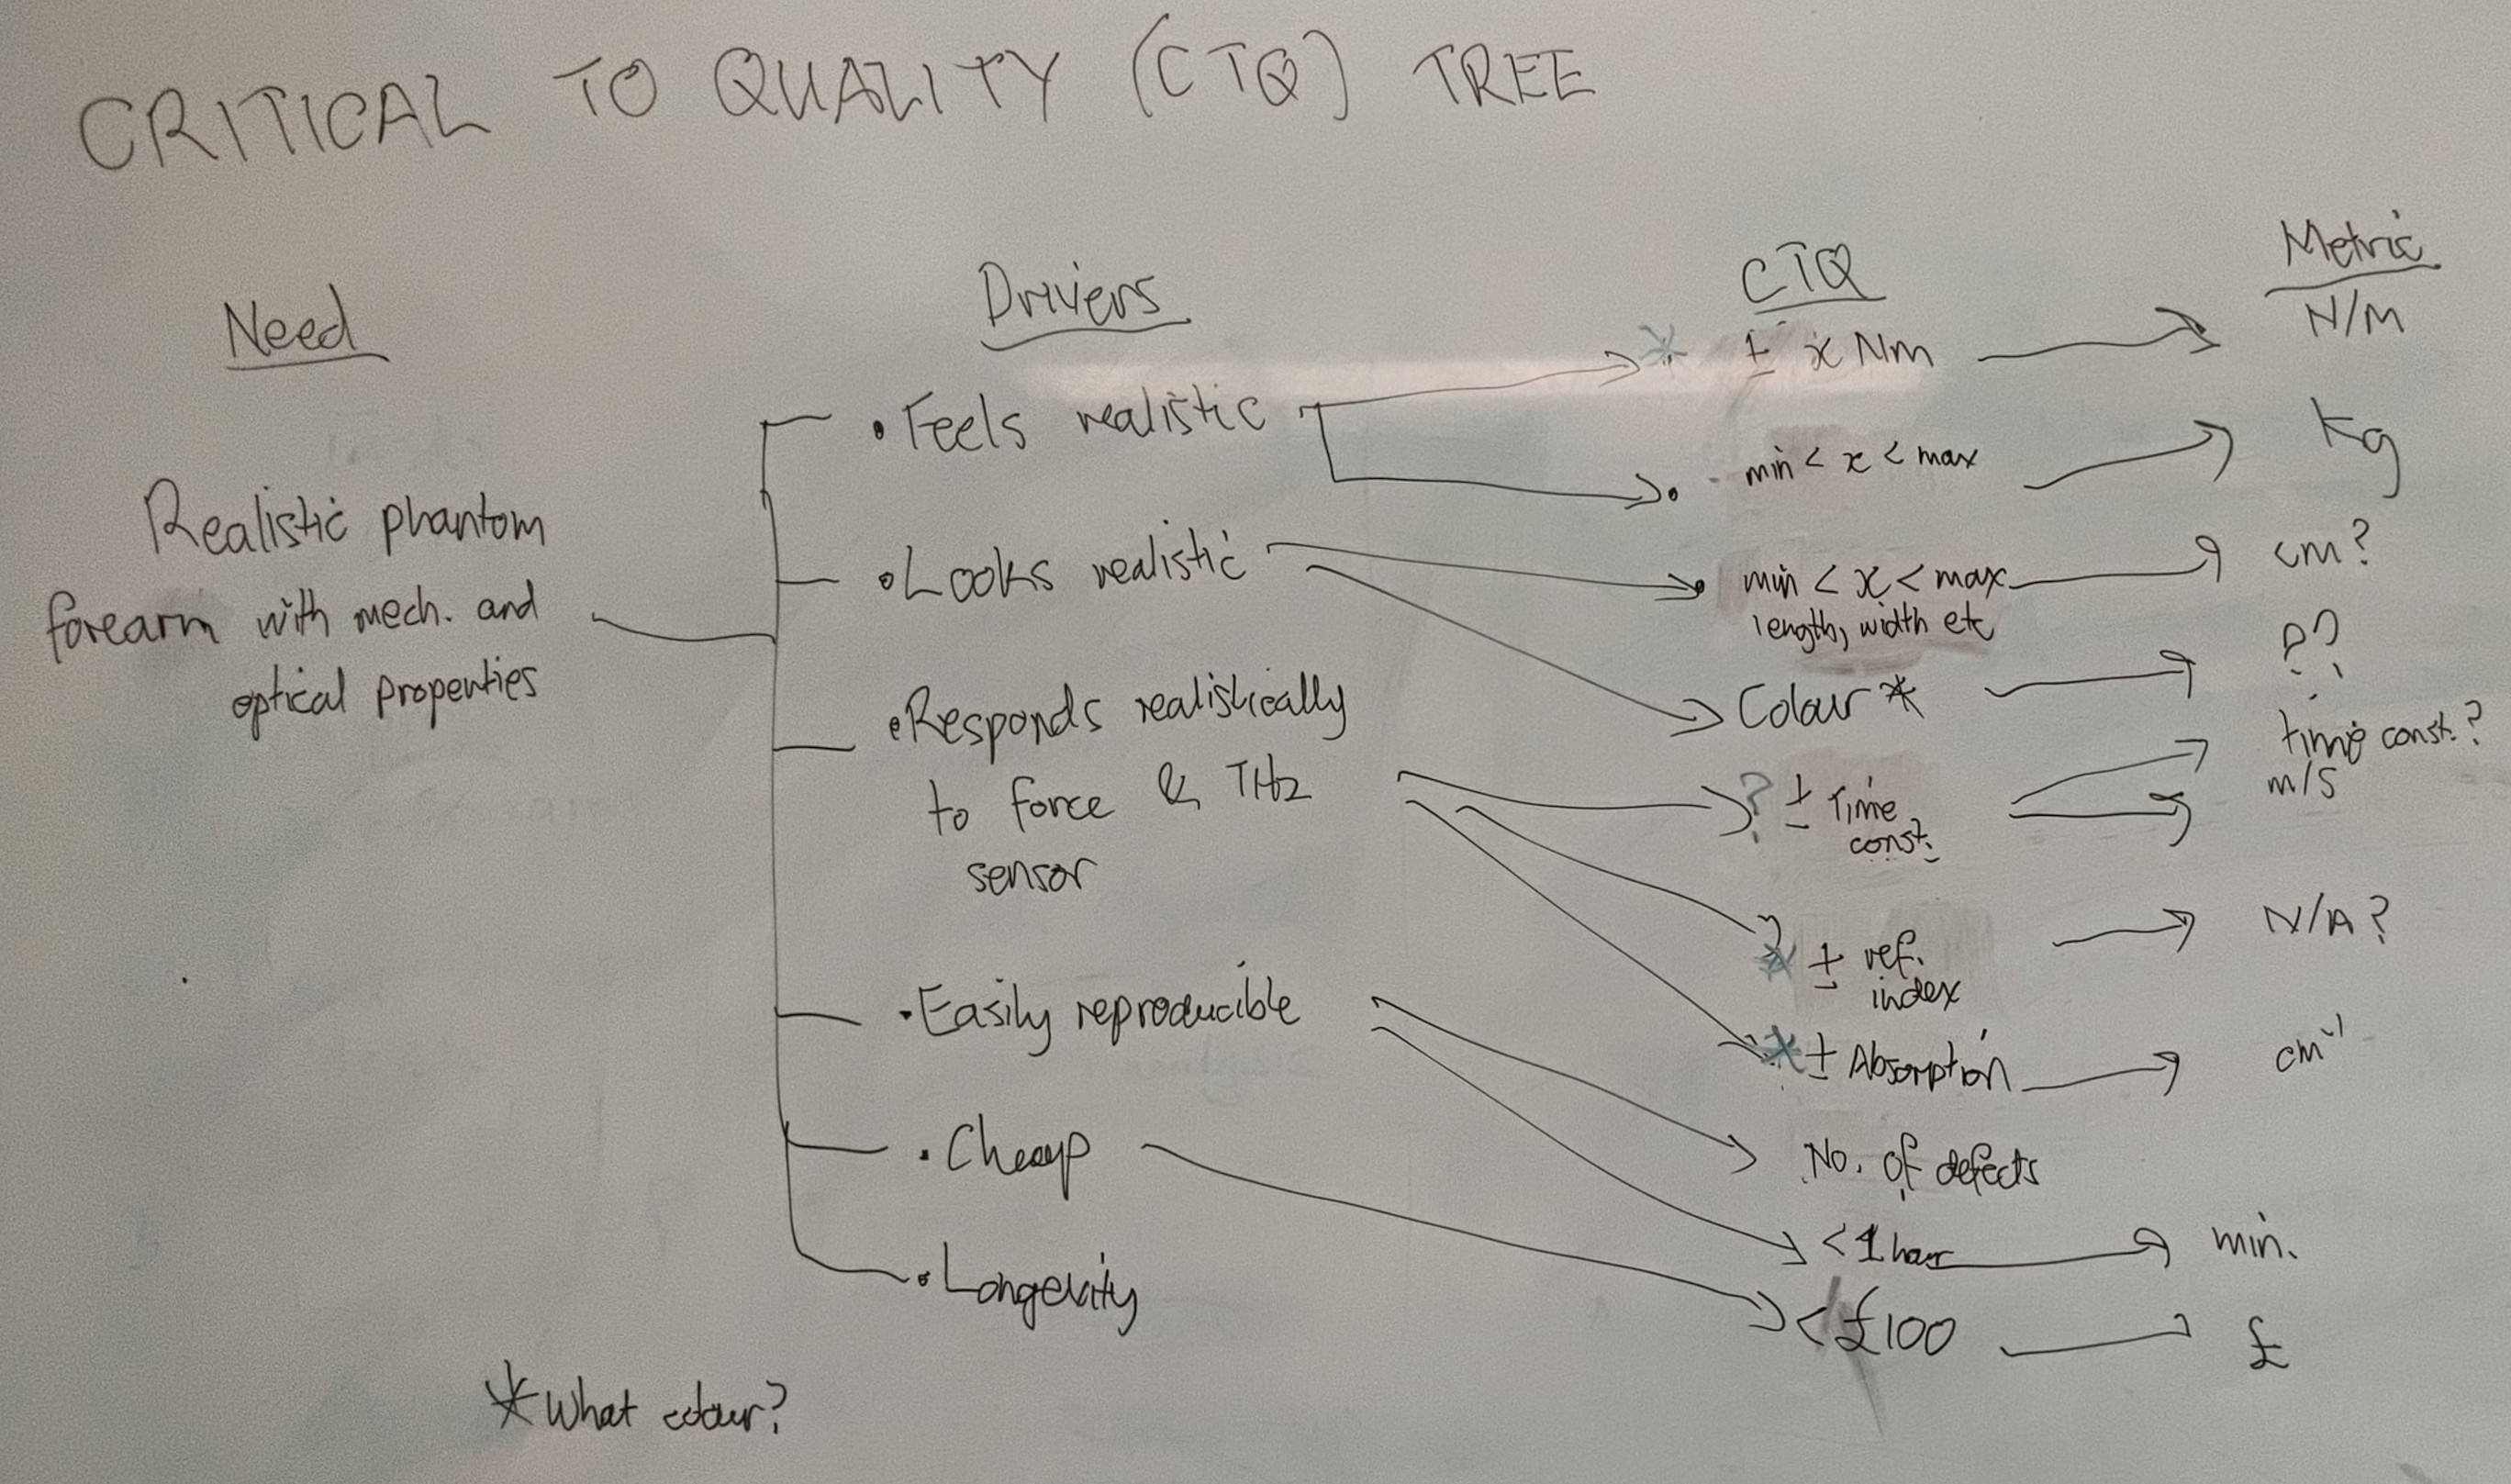 CRITICAL TO QUALITY (CTQ) TREE
Need
Realistic phantom
forearm with mech. and
optical properties
Drivers
• Feels realistic
• Looks realistic
• Responds realistically
to force & THz
sensor
• Easily reproducible
• Cheap
• Longevity
CTQ
* ± x Nm
• min < x < max
• min < x < max
length, width etc
Colour *
? ± Time
const.
* ± ref.
index
* ± Absorption
No. of defects
<1 hour
<£100
Metric
N/M
Kg
cm?
??
time const.?
m/s
N/A?
cm⁻¹
min.
£
* What colour?